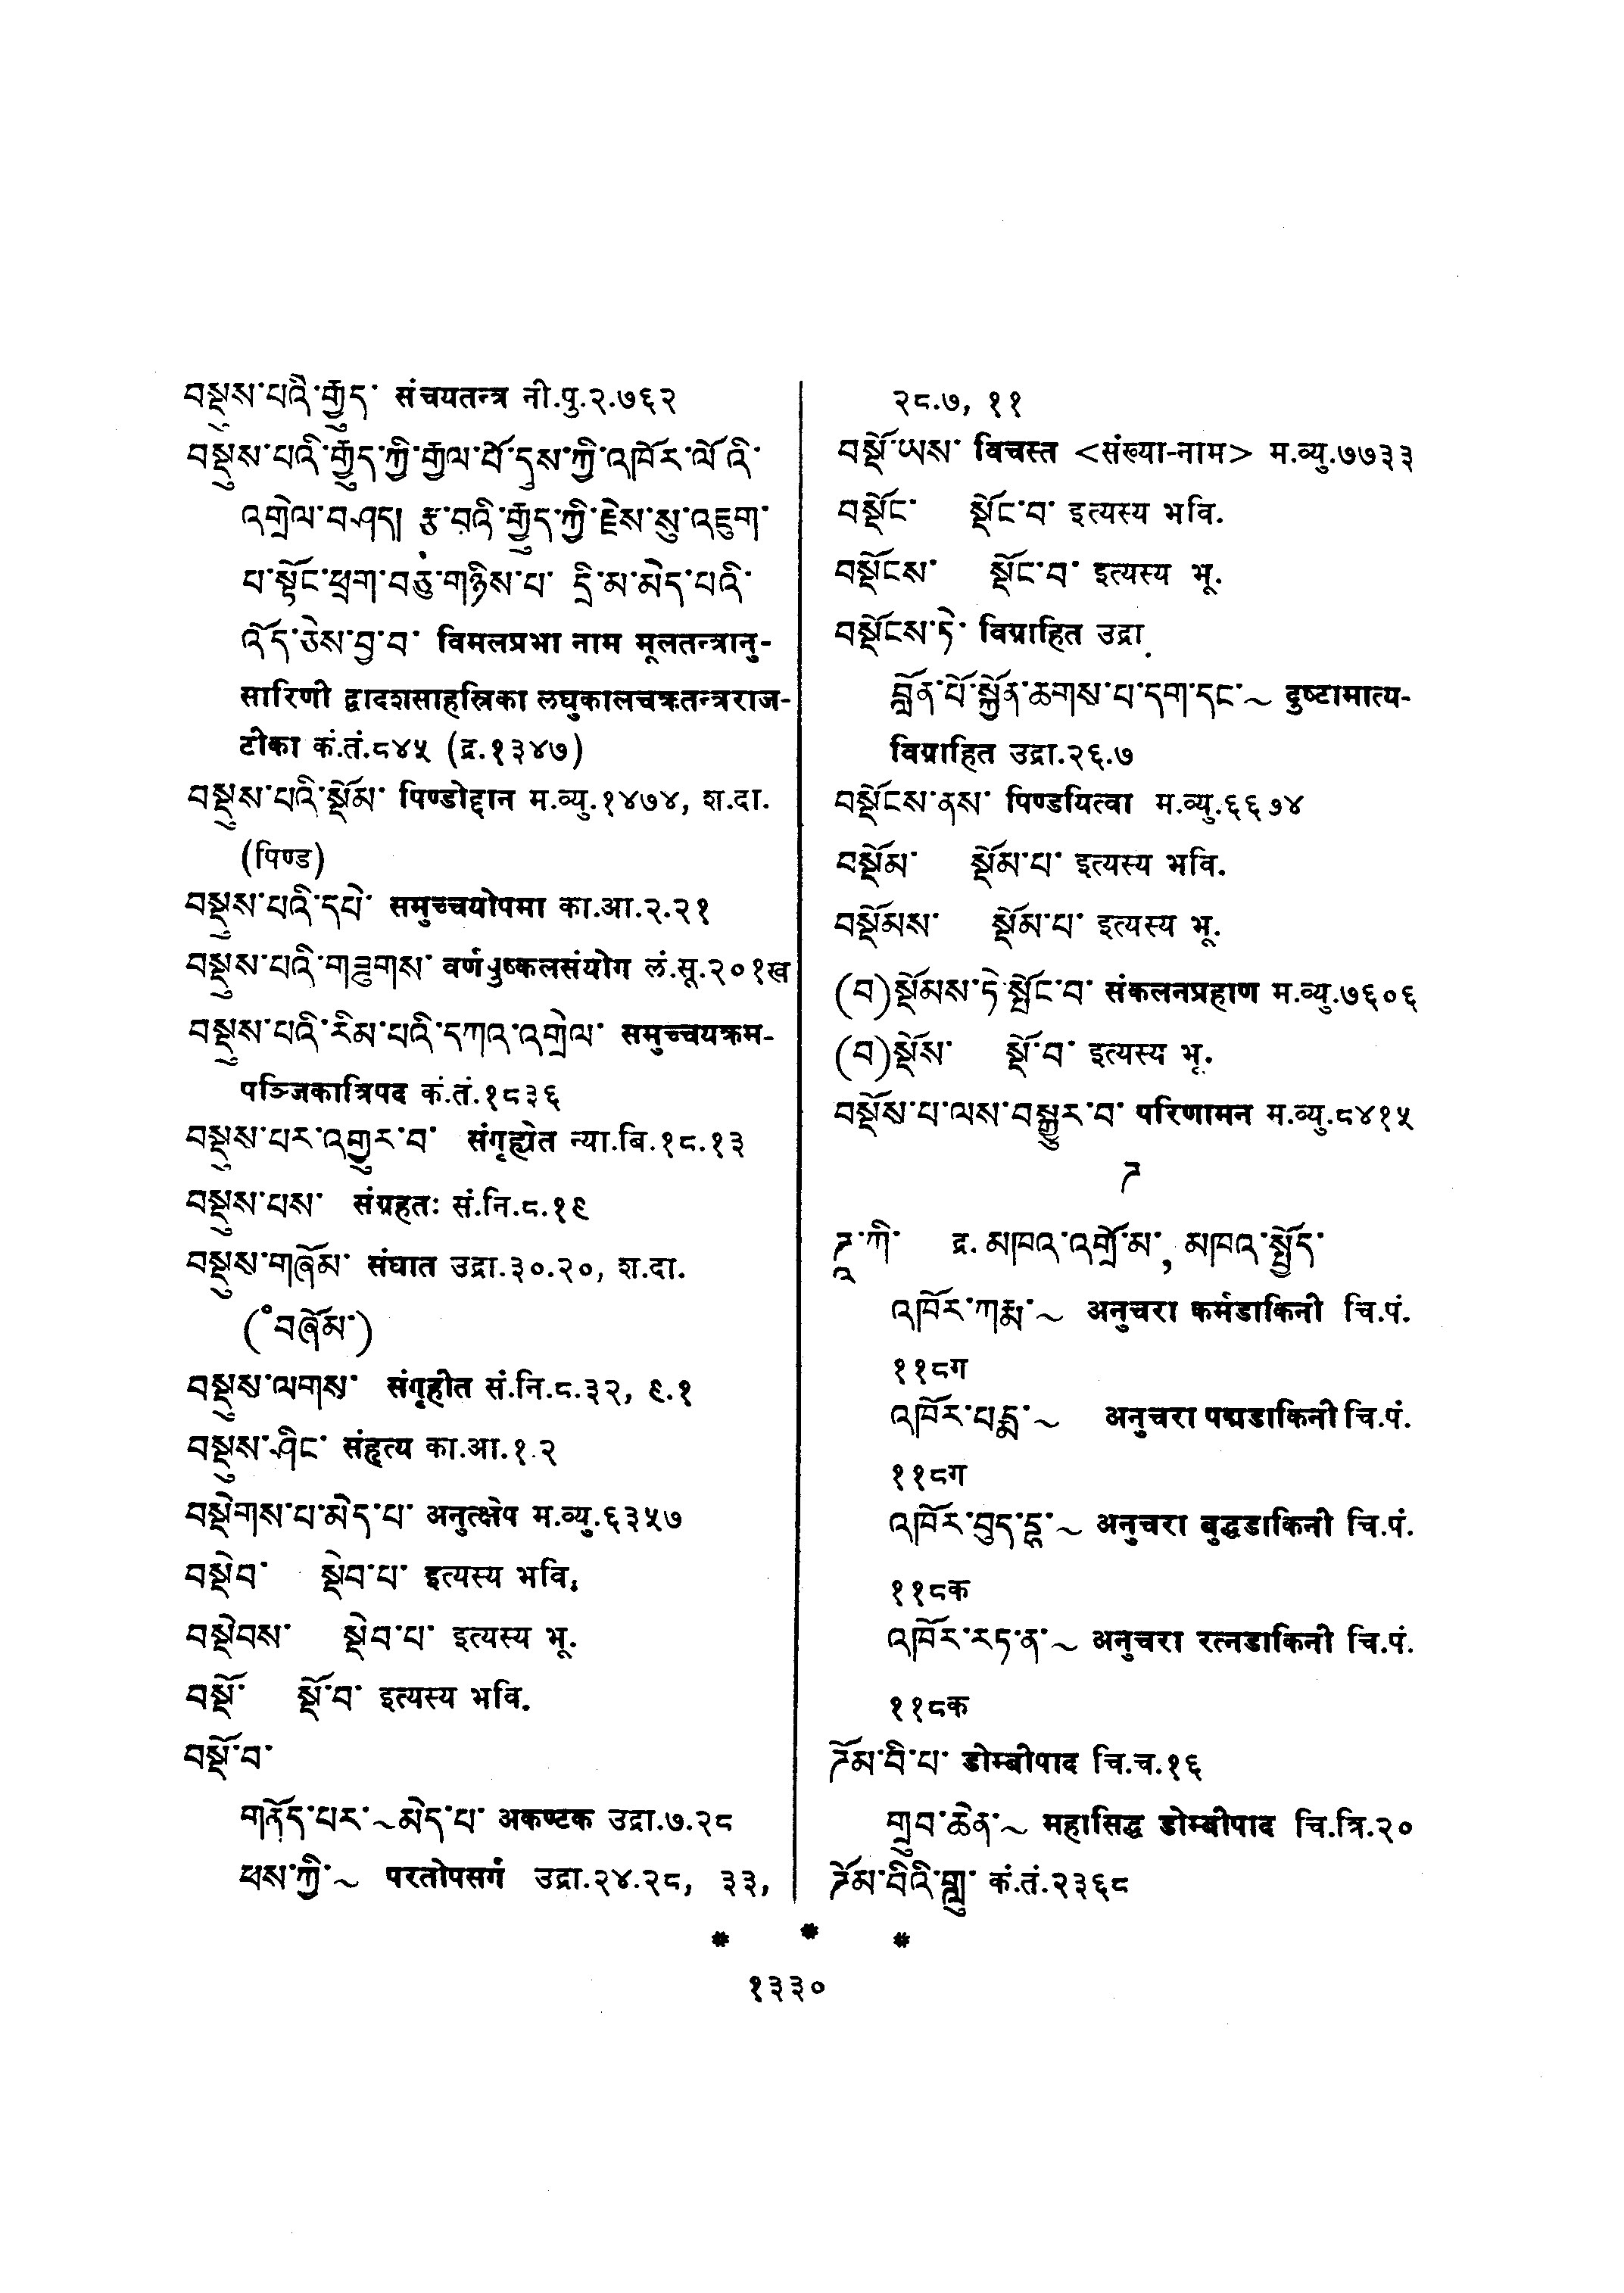 བསྡུས་པའི་རྒྱུད་ संचयतन्त्र नी.पु.२.७६२
བསྡུས་པའི་རྒྱུད་ཀྱི་རྒྱལ་པོ་དུས་ཀྱི་འཁོར་ལོ་འི་
འགྲེལ་བཤད། རྩ་བའི་རྒྱུད་ཀྱི་རྗེས་སུ་འཇུག་
པ་སྟོང་ཕྲག་བཅུ་གཉིས་པ་ དྲི་མ་མེད་པའི་
འོད་ཅེས་བྱ་བ་ विमलप्रभा नाम मूलतन्त्रानु-
सारिणी द्वादशसाहस्रिका लघुकालचक्रतन्त्रराज-
टीका कं.तं.८४५ (द्र.१३४७)
བསྡུས་པའི་སྡོམ་ पिण्डोद्दान म.व्यु.१४७४, श.दा.
(पिण्ड)
བསྡུས་པའི་དཔེ་ समुच्चयोपमा का.आ.२.२१
བསྡུས་པའི་གཟུགས་ वर्णपुष्कलसंयोग लं.सू.२०१ख
བསྡུས་པའི་རིམ་པའི་དཀའ་འགྲེལ་ समुच्चयक्रम-
पञ्जिकात्रिपद कं.तं.१८३६
བསྡུས་པར་འགྱུར་བ་ संगृह्येत न्या.बि.१८.१३
བསྡུས་པས་ संग्रहतः सं.नि.८.१९
བསྡུས་གཞོམ་ संघात उद्रा.३०.२०, श.दा.
(॰བཞོམ་)
བསྡུས་ལགས་ संगृहीत सं.नि.८.३२, ९.१
བསྡུས་ཤིང་ संहृत्य का.आ.१.२
བསྡེགས་པ་མེད་པ་ अनुत्क्षेप म.व्यु.६३५७
བསྡེབ་ སྡེབ་པ་ इत्यस्य भवि.
བསྡེབས་ སྡེབ་པ་ इत्यस्य भू.
བསྡོ་ སྡོ་བ་ इत्यस्य भवि.
བསྡོ་བ་
གནོད་པར་~མེད་པ་ अकण्टक उद्रा.७.२८
ཕས་ཀྱི་~ परतोपसर्ग उद्रा.२४.२८, ३३,
२८.७, ११
བསྡོ་ཡས་ विचस्त <संख्या-नाम> म.व्यु.७७३३
བསྡོང་ སྡོང་བ་ इत्यस्य भवि.
བསྡོངས་ སྡོང་བ་ इत्यस्य भू.
བསྡོངས་ཏེ་ विग्राहित उद्रा.
བློན་པོ་སྐྱོན་ཆགས་པ་དག་དང་~ दुष्टामात्य-
विग्राहित उद्रा.२६.७
བསྡོངས་ནས་ पिण्डयित्वा म.व्यु.६६७४
བསྡོམ་ སྡོམ་པ་ इत्यस्य भवि.
བསྡོམས་ སྡོམ་པ་ इत्यस्य भू.
(བ)སྡོམས་ཏེ་སྤོང་བ་ संकलनप्रहाण म.व्यु.७६०६
(བ)སྡོས་ སྡོ་བ་ इत्यस्य भू.
བསྡོས་པ་ལས་བསྒྱུར་བ་ परिणामन म.व्यु.८४१५
ཌ
ཌཱ་ཀི་ द्र. མཁའ་འགྲོ་མ་, མཁའ་སྤྱོད་
འཁོར་ཀརྨ་~ अनुचरा कर्मडाकिनी चि.पं.
११८ग
འཁོར་པདྨ་~ अनुचरा पद्मडाकिनी चि.पं.
११८ग
འཁོར་བུད་དྷ་~ अनुचरा बुद्धडाकिनी चि.पं.
११८क
འཁོར་རཏ་ན་~ अनुचरा रत्नडाकिनी चि.पं.
११८क
ཌོམ་བི་པ་ डोम्बीपाद चि.च.१६
གྲུབ་ཆེན་~ महासिद्ध डोम्बीपाद चि.त्रि.२०
ཌོམ་བིའི་གླུ་ कं.तं.२३६८
* * *
१३३०